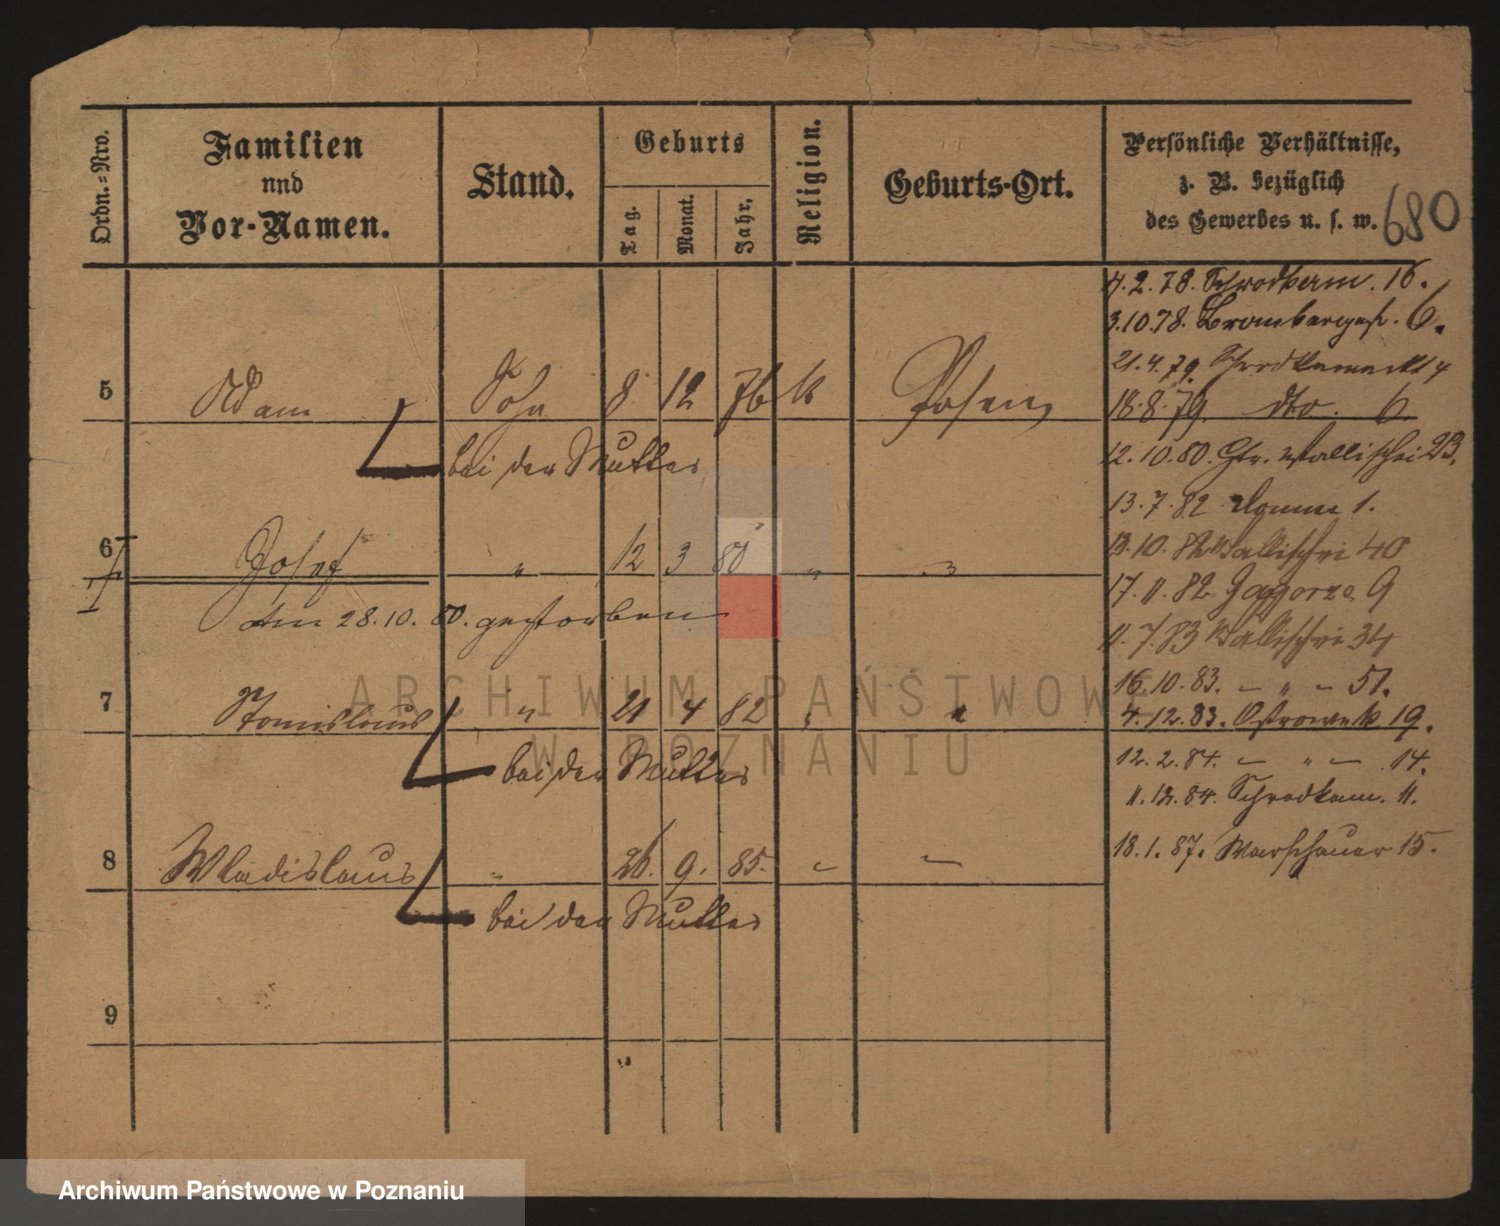 Ordn.=Nro.
Familien
und
Vor-Namen.
Stand.
Geburts
Tag.
Monat.
Jahr.
Religion.
Geburts-Ort.
Persönliche Verhältnisse,
z. B. bezüglich
des Gewerbes u. s. w.
680
4.2.78. Schrodkam. 16.
3.10.78. Brombergest. 6.
21.4.79. Schrodkamarkt 4
5 Adam Sohn 8 12 76 k Posen
18.8.79. dto. 6
bei der Mutter
12.10.80. Gr. Wallischei 23.
13.7.82 Domm 1.
6 Josef " 12 3 80 " "
13.10.82 Wallischei 40
17.11.82 Zagorze 9
am 28.10.80. gestorben
11.7.83 Wallischei 34
16.10.83. — " — 51.
7 Stanislaus " 21 4 82 " "
4.12.83. Ostrowek 19.
bei der Mutter
12.2.84. — " — 14.
11.12.84. Schrodkam. 11.
8 Wladislaus " 26. 9. 85. " —
18.1.87. Warschauer 15.
bei der Mutter
9
ARCHIWUM PAŃSTWOWE
W POZNANIU
Archiwum Państwowe w Poznaniu